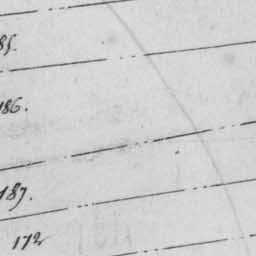 85.
186.
187.
172